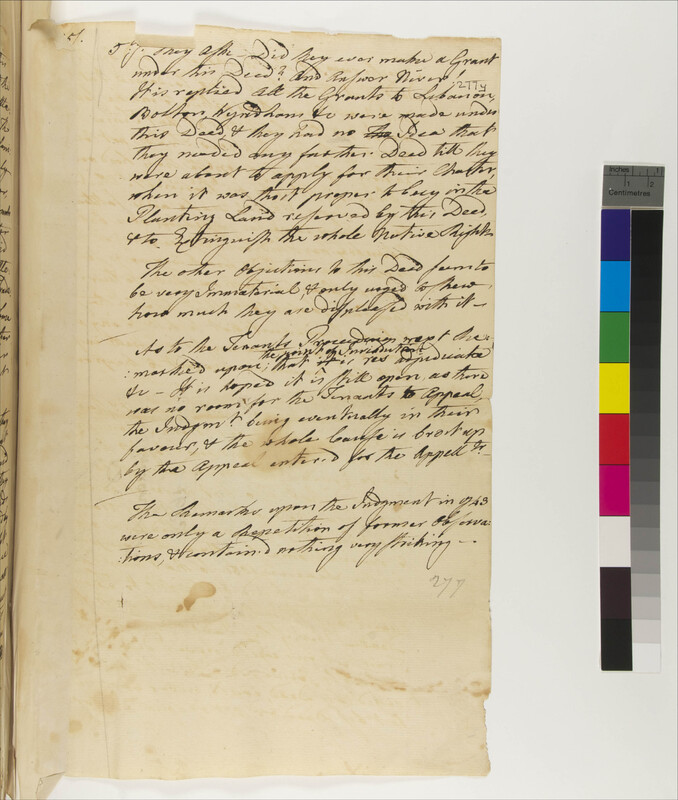 5.
5. They Ask - Did they ever make a Grant
under this Deed? And Answer Never!
It is replied All the Grants to Lebanon,
277
Bolton, Wyndham &c were made under
this Deed, & they had no Idea that
they needed any further Deed till they
were about to apply for their Charter,
when it was tho't proper to buy in the
Planting Land reserved by this Deed,
& to Extinguish the whole Native Rights
The other Objections to this Deed seem to
be very Immaterial, & only urged to shew
how much they are displeased with it -
As to the Tenants Proceeding next Re-
the point of Jurisdiction
:marked upon; that it is res adjudicata
&c - It is hoped it is still open, as there
was no room for the Tenants to Appeal,
the Judgmt being eventually in their
favour, & the whole Cause is bro't up
by the Appeal enter'd for the Appell ts -
The Remarks upon the Judgment in 1743
were only a Repetition of former Observa-
:tions, & contain'd nothing very striking -.
277
Inches
1
2
Centimetres